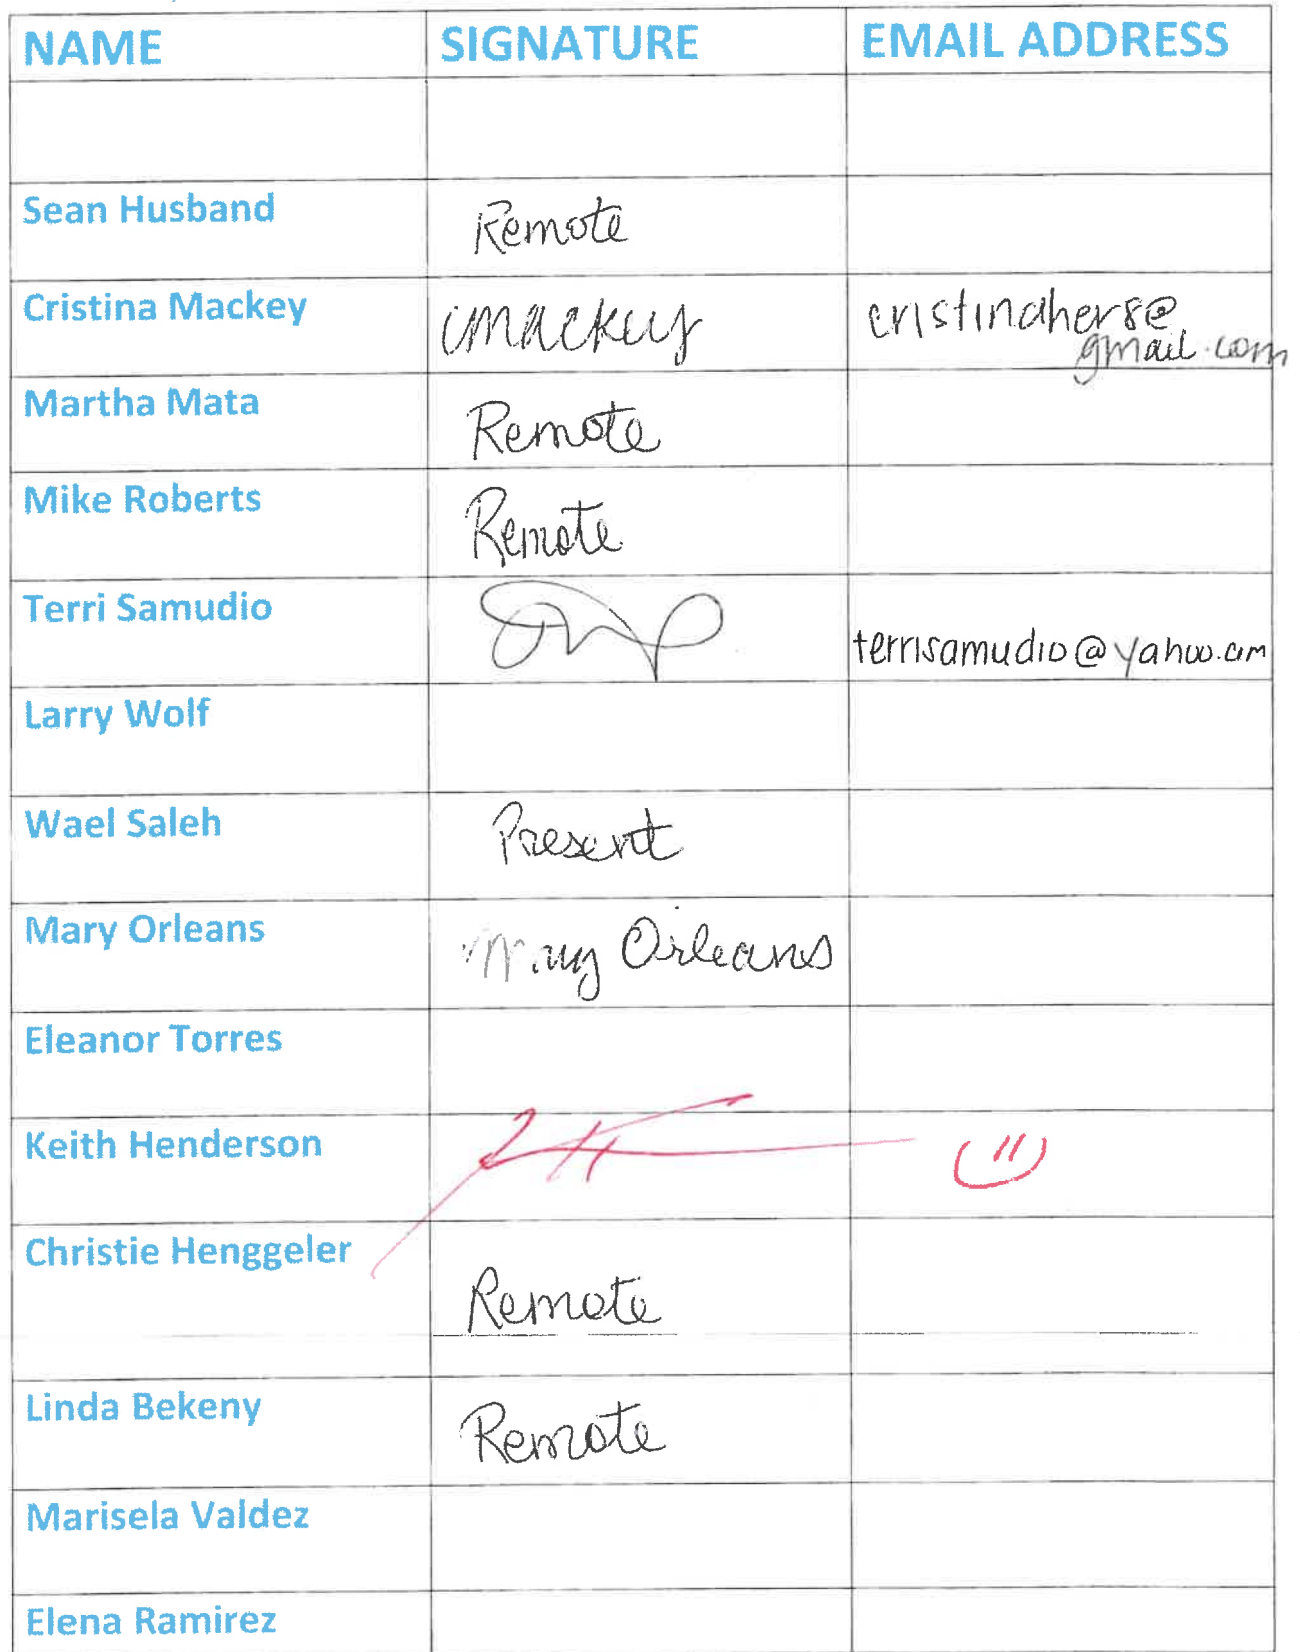 NAME SIGNATURE EMAIL ADDRESS
Sean Husband Remote
Cristina Mackey cmackey cristinaher8@
gmail.com
Martha Mata Remote
Mike Roberts Remote
Terri Samudio terrisamudio@yahoo.com
Larry Wolf
Wael Saleh Present
Mary Orleans Mary Orleans
Eleanor Torres
Keith Henderson
Christie Henggeler
Remote
Linda Bekeny Remote
Marisela Valdez
Elena Ramirez